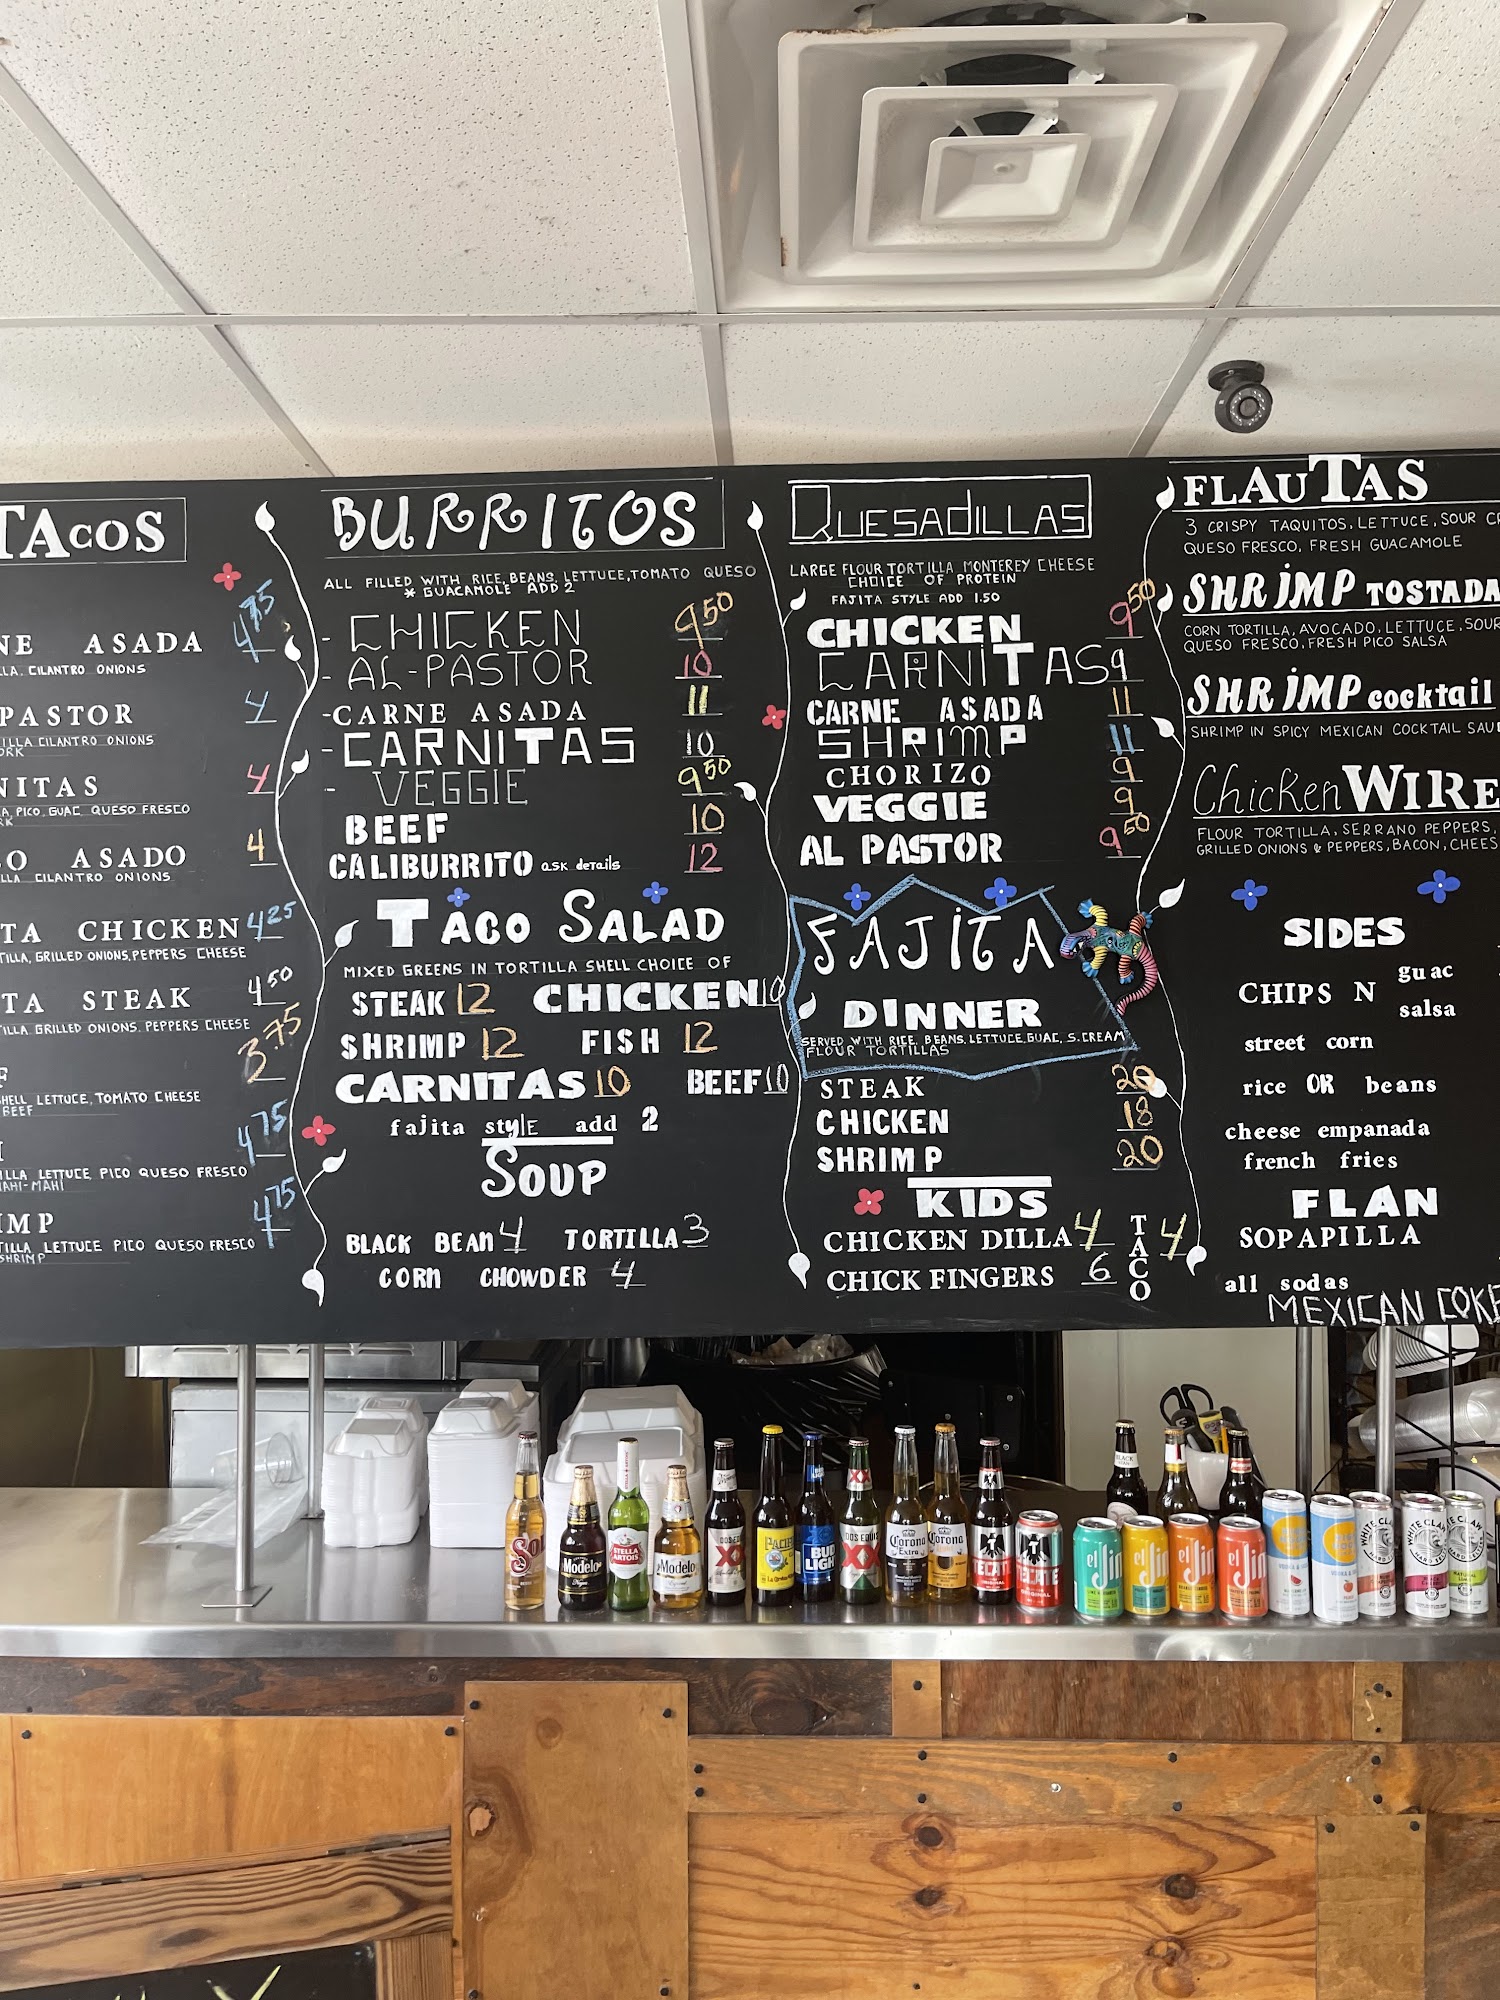 TACOS
NE ASADA 4.75
LA. CILANTRO ONIONS
PASTOR 4
ILLA CILANTRO ONIONS
ORK
NITAS 4
A, PICO, GUAC QUESO FRESCO
RK
O ASADO 4
LLA CILANTRO ONIONS
TA CHICKEN 4.25
TILLA, GRILLED ONIONS, PEPPERS CHEESE
TA STEAK 4.50
TILLA GRILLED ONIONS. PEPPERS CHEESE
F 3.75
SHELL LETTUCE, TOMATO CHEESE
BEEF
4.75
ILLA LETTUCE, PICO QUESO FRESCO
MAHI-MAHI
IMP 4.75
TILLA LETTUCE PICO QUESO FRESCO
SHRIMP
BURRITOS
ALL FILLED WITH RICE, BEANS, LETTUCE, TOMATO QUESO
* GUACAMOLE ADD 2
- CHICKEN 9.50
- AL-PASTOR 10
-CARNE ASADA 11
- CARNITAS 10
- VEGGIE 9.50
BEEF 10
CALIBURRITO ask details 12
TACO SALAD
MIXED GREENS IN TORTILLA SHELL CHOICE OF
STEAK 12 CHICKEN 10
SHRIMP 12 FISH 12
CARNITAS 10 BEEF 10
fajita style add 2
SOUP
BLACK BEAN 4 TORTILLA 3
CORN CHOWDER 4
QUESADILLAS
LARGE FLOUR TORTILLA MONTEREY CHEESE
CHOICE OF PROTEIN
FAJITA STYLE ADD 1.50
CHICKEN 9.50
CARNITAS 9
CARNE ASADA 11
SHRIMP 11
CHORIZO 9
VEGGIE 9
AL PASTOR 9.50
FAJITA
DINNER
SERVED WITH RICE, BEANS, LETTUCE, GUAC, S.CREAM
FLOUR TORTILLAS
STEAK 20
CHICKEN 18
SHRIMP 20
KIDS
CHICKEN DILLA 4
CHICK FINGERS 6
TACO 4
FLAUTAS
3 CRISPY TAQUITOS, LETTUCE, SOUR CR
QUESO FRESCO, FRESH GUACAMOLE
SHRIMP TOSTADA
CORN TORTILLA, AVOCADO, LETTUCE, SOUR
QUESO FRESCO, FRESH PICO SALSA
SHRIMP cocktail
SHRIMP IN SPICY MEXICAN COCKTAIL SAU
Chicken WIRE
FLOUR TORTILLA, SERRANO PEPPERS,
GRILLED ONIONS & PEPPERS, BACON, CHEES
SIDES
CHIPS N guac
salsa
street corn
rice OR beans
cheese empanada
french fries
FLAN
SOPAPILLA
all sodas
MEXICAN COKE
Sol
Modelo
STELLA ARTOIS
Modelo
DOS EQUIS
XX
BUD LIGHT
DOS EQUIS
XX
Corona
Extra
Corona
TECATE
TECATE
ORIGINAL
el Jim
el Jim
el Jim
el Jim
WHITE CLAW
WHITE CLAW